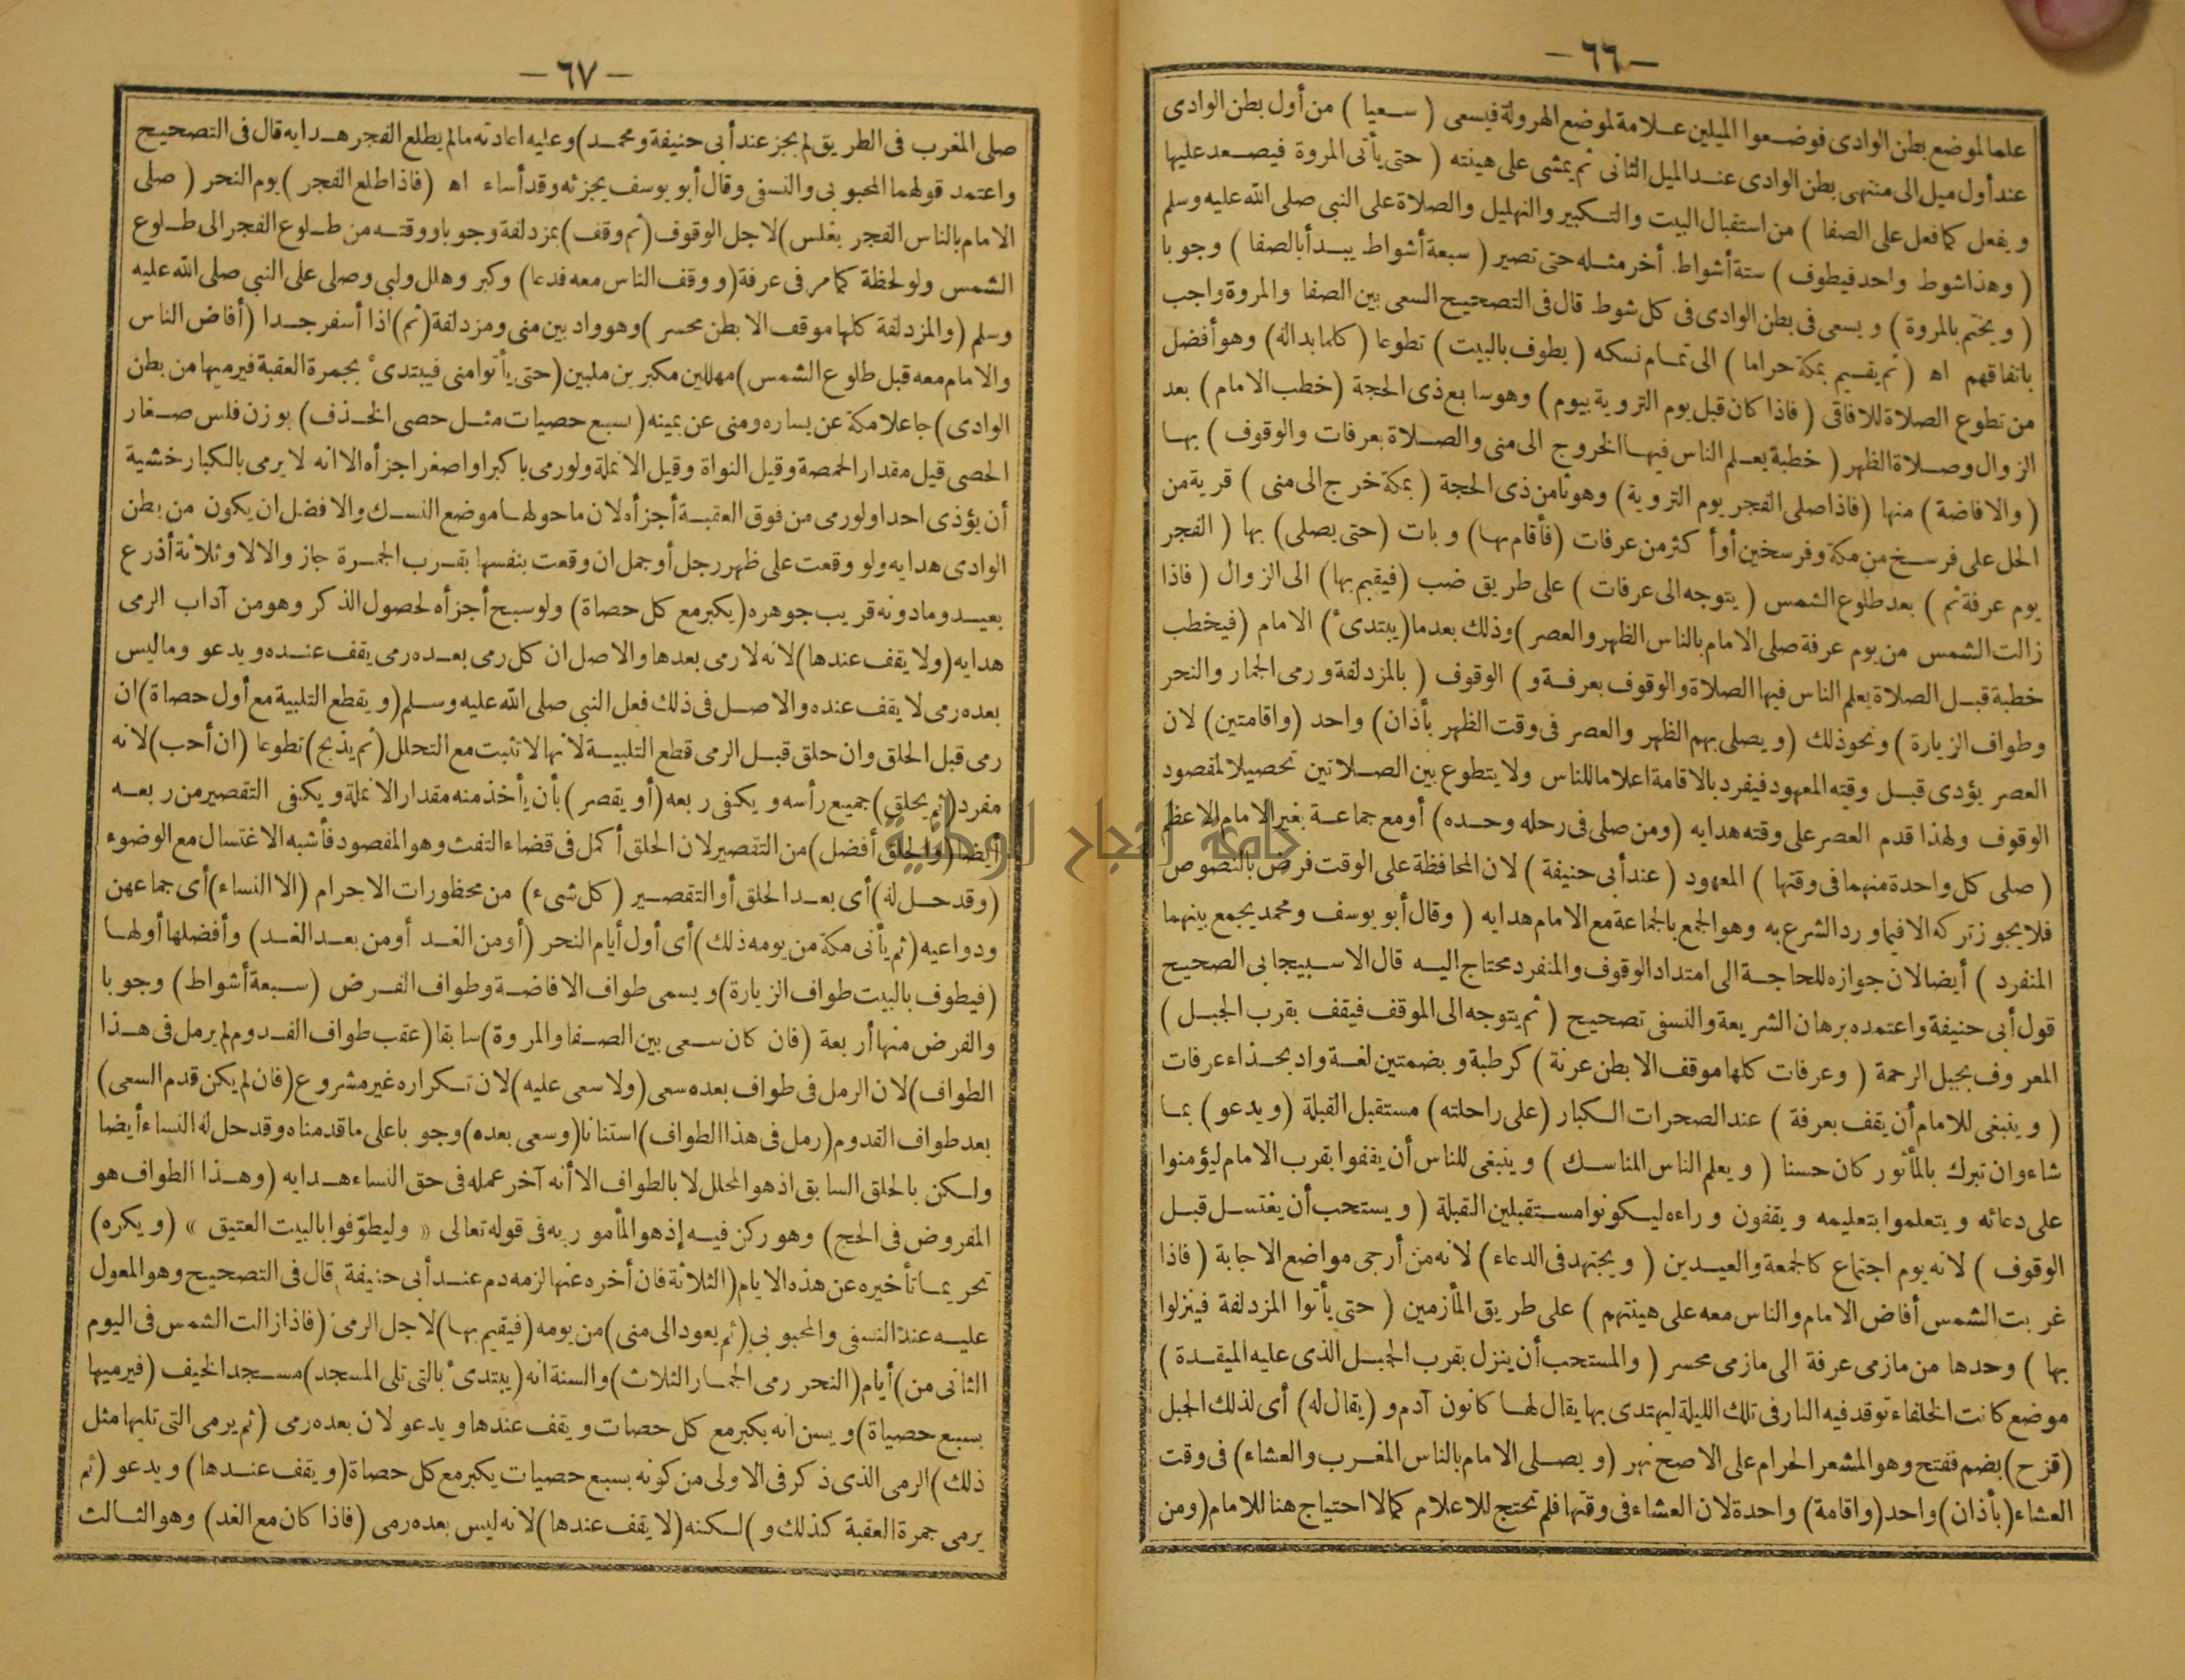 — ٦٦ —
علما لموضع بطن الوادى فوضعوا الميلين علامة لموضع الهرولة فيسعى ( سعيا ) من أول بطن الوادى
عند أول ميل الى منتهى بطن الوادى عند الميل الثانى ثم يمشى على هينته ( حتى يأتى المروة فيصعد عليها
ويفعل كما فعل على الصفا ) من استقبال البيت والتكبير والتهليل والصلاة على النبى صلى الله عليه وسلم
( وهذا شوط واحد فيطوف ) ستة أشواط. أخر مثله حتى تصير ( سبعة أشواط يبدأ بالصفا ) وجوبا
( ويختم بالمروة ) ويسعى فى بطن الوادى فى كل شوط قال فى التصحيح السعى بين الصفا والمروة واجب
باتفاقهم اه ( ثم يقيم بمكة حراما ) الى تمام نسكه ( يطوف بالبيت ) تطوعا ( كلما بداله ) وهو أفضل
من تطوع الصلاة للافاقى ( فاذا كان قبل يوم التروية بيوم ) وهو سابع ذى الحجة ( خطب الامام ) بعد
الزوال وصلاة الظهر ( خطبة يعلم الناس فيها الخروج الى منى والصلاة بعرفات والوقوف ) بها
( والافاضة ) منها ( فاذا صلى الفجر يوم التروية ) وهو ثامن ذى الحجة ( بمكة خرج الى منى ) قرية من
الحل على فرسخ من مكة وفرسخين أو أكثر من عرفات ( فأقام بها ) وبات ( حتى يصلى ) بها ( الفجر
يوم عرفة ثم ) بعد طلوع الشمس ( يتوجه الى عرفات ) على طريق ضب ( فيقيم بها ) الى الزوال ( فاذا
زالت الشمس من يوم عرفة صلى الامام بالناس الظهر والعصر ) وذلك بعدما ( يبتدىء ) الامام ( فيخطب
خطبة قبل الصلاة يعلم الناس فيها الصلاة والوقوف بعرفة و ) الوقوف ( بالمزدلفة ورمى الجمار والنحر
وطواف الزيارة ) ونحو ذلك ( ويصلى بهم الظهر والعصر فى وقت الظهر بأذان ) واحد ( واقامتين ) لان
العصر يؤدى قبل وقته المعهود فيفرد بالاقامة اعلاما للناس ولا يتطوع بين الصلاتين تحصيلا لمقصود
الوقوف ولهذا قدم العصر على وقته هدايه ( ومن صلى فى رحله وحده ) أو مع جماعة بغير الامام الاعظم
( صلى كل واحدة منهما فى وقتها ) المعهود ( عند أبى حنيفة ) لان المحافظة على الوقت فرض بالنصوص
فلا يجوز تركه الا فيما ورد الشرع به وهو الجمع بالجماعة مع الامام هدايه ( وقال أبو يوسف ومحمد يجمع بينهما
المنفرد ) أيضا لان جوازه للحاجة الى امتداد الوقوف والمنفرد محتاج اليه قال الاسبيجابى الصحيح
قول أبى حنيفة واعتمده برهان الشريعة والنسفى تصحيح ( ثم يتوجه الى الموقف فيقف بقرب الجبل )
المعروف بجبل الرحمة ( وعرفات كلها موقف الا بطن عرنة ) كرطبة وبضمتين لغة واد بحذاء عرفات
( وينبغى للامام أن يقف بعرفة ) عند الصخرات الكبار ( على راحلته ) مستقبل القبلة ( ويدعو ) بما
شاء وان تبرك بالمأثور كان حسنا ( ويعلم الناس المناسك ) وينبغى للناس أن يقفوا بقرب الامام ليؤمنوا
على دعائه ويتعلموا بتعليمه ويقفون وراءه ليكونوا مستقبلين القبلة ( ويستحب أن يغتسل قبل
الوقوف ) لانه يوم اجتماع كالجمعة والعيدين ( ويجتهد فى الدعاء ) لانه من أرجى مواضع الاجابة ( فاذا
غربت الشمس أفاض الامام والناس معه على هينتهم ) على طريق المأزمين ( حتى يأتوا المزدلفة فينزلوا
بها ) وحدها من مازمى عرفة الى مازمى محسر ( والمستحب أن ينزل بقرب الجبل الذى عليه الميقدة )
موضع كانت الخلفاء توقد فيه النار فى تلك الليلة ليهتدى بها يقال لها كانون آدم و ( يقال له ) أى لذلك الجبل
( قزح ) بضم ففتح وهو المشعر الحرام على الاصح نهر ( ويصلى الامام بالناس المغرب والعشاء ) فى وقت
العشاء ( بأذان ) واحد ( واقامة ) واحدة لان العشاء فى وقتها فلم تحتج للاعلام كما لا احتياج هنا للامام ( ومن
— ٦٧ —
صلى المغرب فى الطريق لم يجز عند أبى حنيفة ومحمد ) وعليه اعادته مالم يطلع الفجر هدايه قال فى التصحيح
واعتمد قولهما المحبوبى والنسفى وقال أبو يوسف يجزئه وقد أساء اه ( فاذا طلع الفجر ) يوم النحر ( صلى
الامام بالناس الفجر بغلس ) لاجل الوقوف ( ثم وقف ) بمزدلفة وجوبا ووقته من طلوع الفجر الى طلوع
الشمس ولو لحظة كما مر فى عرفة ( ووقف الناس معه فدعا ) وكبر وهلل ولبى وصلى على النبى صلى الله عليه
وسلم ( والمزدلفة كلها موقف الا بطن محسر ) وهو واد بين منى ومزدلفة ( ثم ) اذا أسفر جدا ( أفاض الناس
والامام معه قبل طلوع الشمس ) مهللين مكبرين ملبين ( حتى يأتوا منى فيبتدىء بجمرة العقبة فيرميها من بطن
الوادى ) جاعلا مكة عن يساره ومنى عن يمينه ( سبع حصيات مثل حصى الخذف ) بوزن فلس صغار
الحصى قيل مقدار الحمصة وقيل النواة وقيل الانملة ولو رمى با كبر او اصغر اجزأه الا انه لا يرمى بالكبار خشية
أن يؤذى احدا ولو رمى من فوق العقبة أجزأه لان ما حولها موضع النسك والافضل ان يكون من بطن
الوادى هدايه ولو وقعت على ظهر رجل أو جمل ان وقعت بنفسها بقرب الجمرة جاز والا لا وثلاثة أذرع
بعيد وما دونه قريب جوهره ( يكبر مع كل حصاة ) ولو سبح أجزأه لحصول الذكر وهو من آداب الرمى
هدايه ( ولا يقف عندها ) لانه لا رمى بعدها والاصل ان كل رمى بعده رمى يقف عنده ويدعو وما ليس
بعده رمى لا يقف عنده والاصل فى ذلك فعل النبى صلى الله عليه وسلم ( ويقطع التلبية مع أول حصاة ) ان
رمى قبل الحلق وان حلق قبل الرمى قطع التلبية لأنها لا تثبت مع التحلل ( ثم يذبح ) تطوعا ( ان أحب ) لانه
مفرد ( ثم يحلق ) جميع رأسه ويكفى ربعه ( أو يقصر ) بأن يأخذ منه مقدار الانملة ويكفى التقصير من ربعه
أيضا ( والحلق أفضل ) من التقصير لان الحلق أكمل فى قضاء التفث وهو المقصود فأشبه الاغتسال مع الوضوء
( وقد حل له ) أى بعد الحلق أو التقصير ( كل شىء ) من محظورات الاحرام ( الا النساء ) أى جماعهن
ودواعيه ( ثم يأتى مكة من يومه ذلك ) أى أول أيام النحر ( أو من الغد أو من بعد الغد ) وأفضلها أولها
( فيطوف بالبيت طواف الزيارة ) ويسمى طواف الافاضة وطواف الفرض ( سبعة أشواط ) وجوبا
والفرض منها أربعة ( فان كان سعى بين الصفا والمروة ) سابقا ( عقب طواف القدوم لم يرمل فى هذا
الطواف ) لان الرمل فى طواف بعده سعى ( ولا سعى عليه ) لان تكراره غير مشروع ( فان لم يكن قدم السعى )
بعد طواف القدوم ( رمل فى هذا الطواف ) استنانا ( وسعى بعده ) وجوبا على ما قدمناه وقد حل له النساء أيضا
ولكن بالحلق السابق اذ هو المحلل لا بالطواف الا أنه آخر عمله فى حق النساء هدايه ( وهذا الطواف هو
المفروض فى الحج ) وهو ركن فيه إذ هو المأمور به فى قوله تعالى « وليطوّفوا بالبيت العتيق » ( ويكره )
تحريما تأخيره عن هذه الايام ( الثلاثة فان أخره عنها لزمه دم عند أبى حنيفة قال فى التصحيح وهو المعول
عليه عند النسفى والمحبوبى ( ثم يعود الى منى ) من يومه ( فيقيم بها ) لاجل الرمى ( فاذا زالت الشمس فى اليوم
الثانى من ) أيام ( النحر رمى الجمار الثلاث ) والسنة انه ( يبتدىء بالتى تلى المسجد ) مسجد الخيف ( فيرميها
بسبع حصياة ) ويسن انه يكبر مع كل حصات ويقف عندها ويدعو لان بعده رمى ( ثم يرمى التى تليها مثل
ذلك ) الرمى الذى ذكر فى الاولى من كونه بسبع حصيات يكبر مع كل حصاة ( ويقف عندها ) ويدعو ( ثم
يرمى جمرة العقبة كذلك و ) لكنه ( لا يقف عندها ) لانه ليس بعده رمى ( فاذا كان مع الغد ) وهو الثالث
جامعة النجاح الوطنية